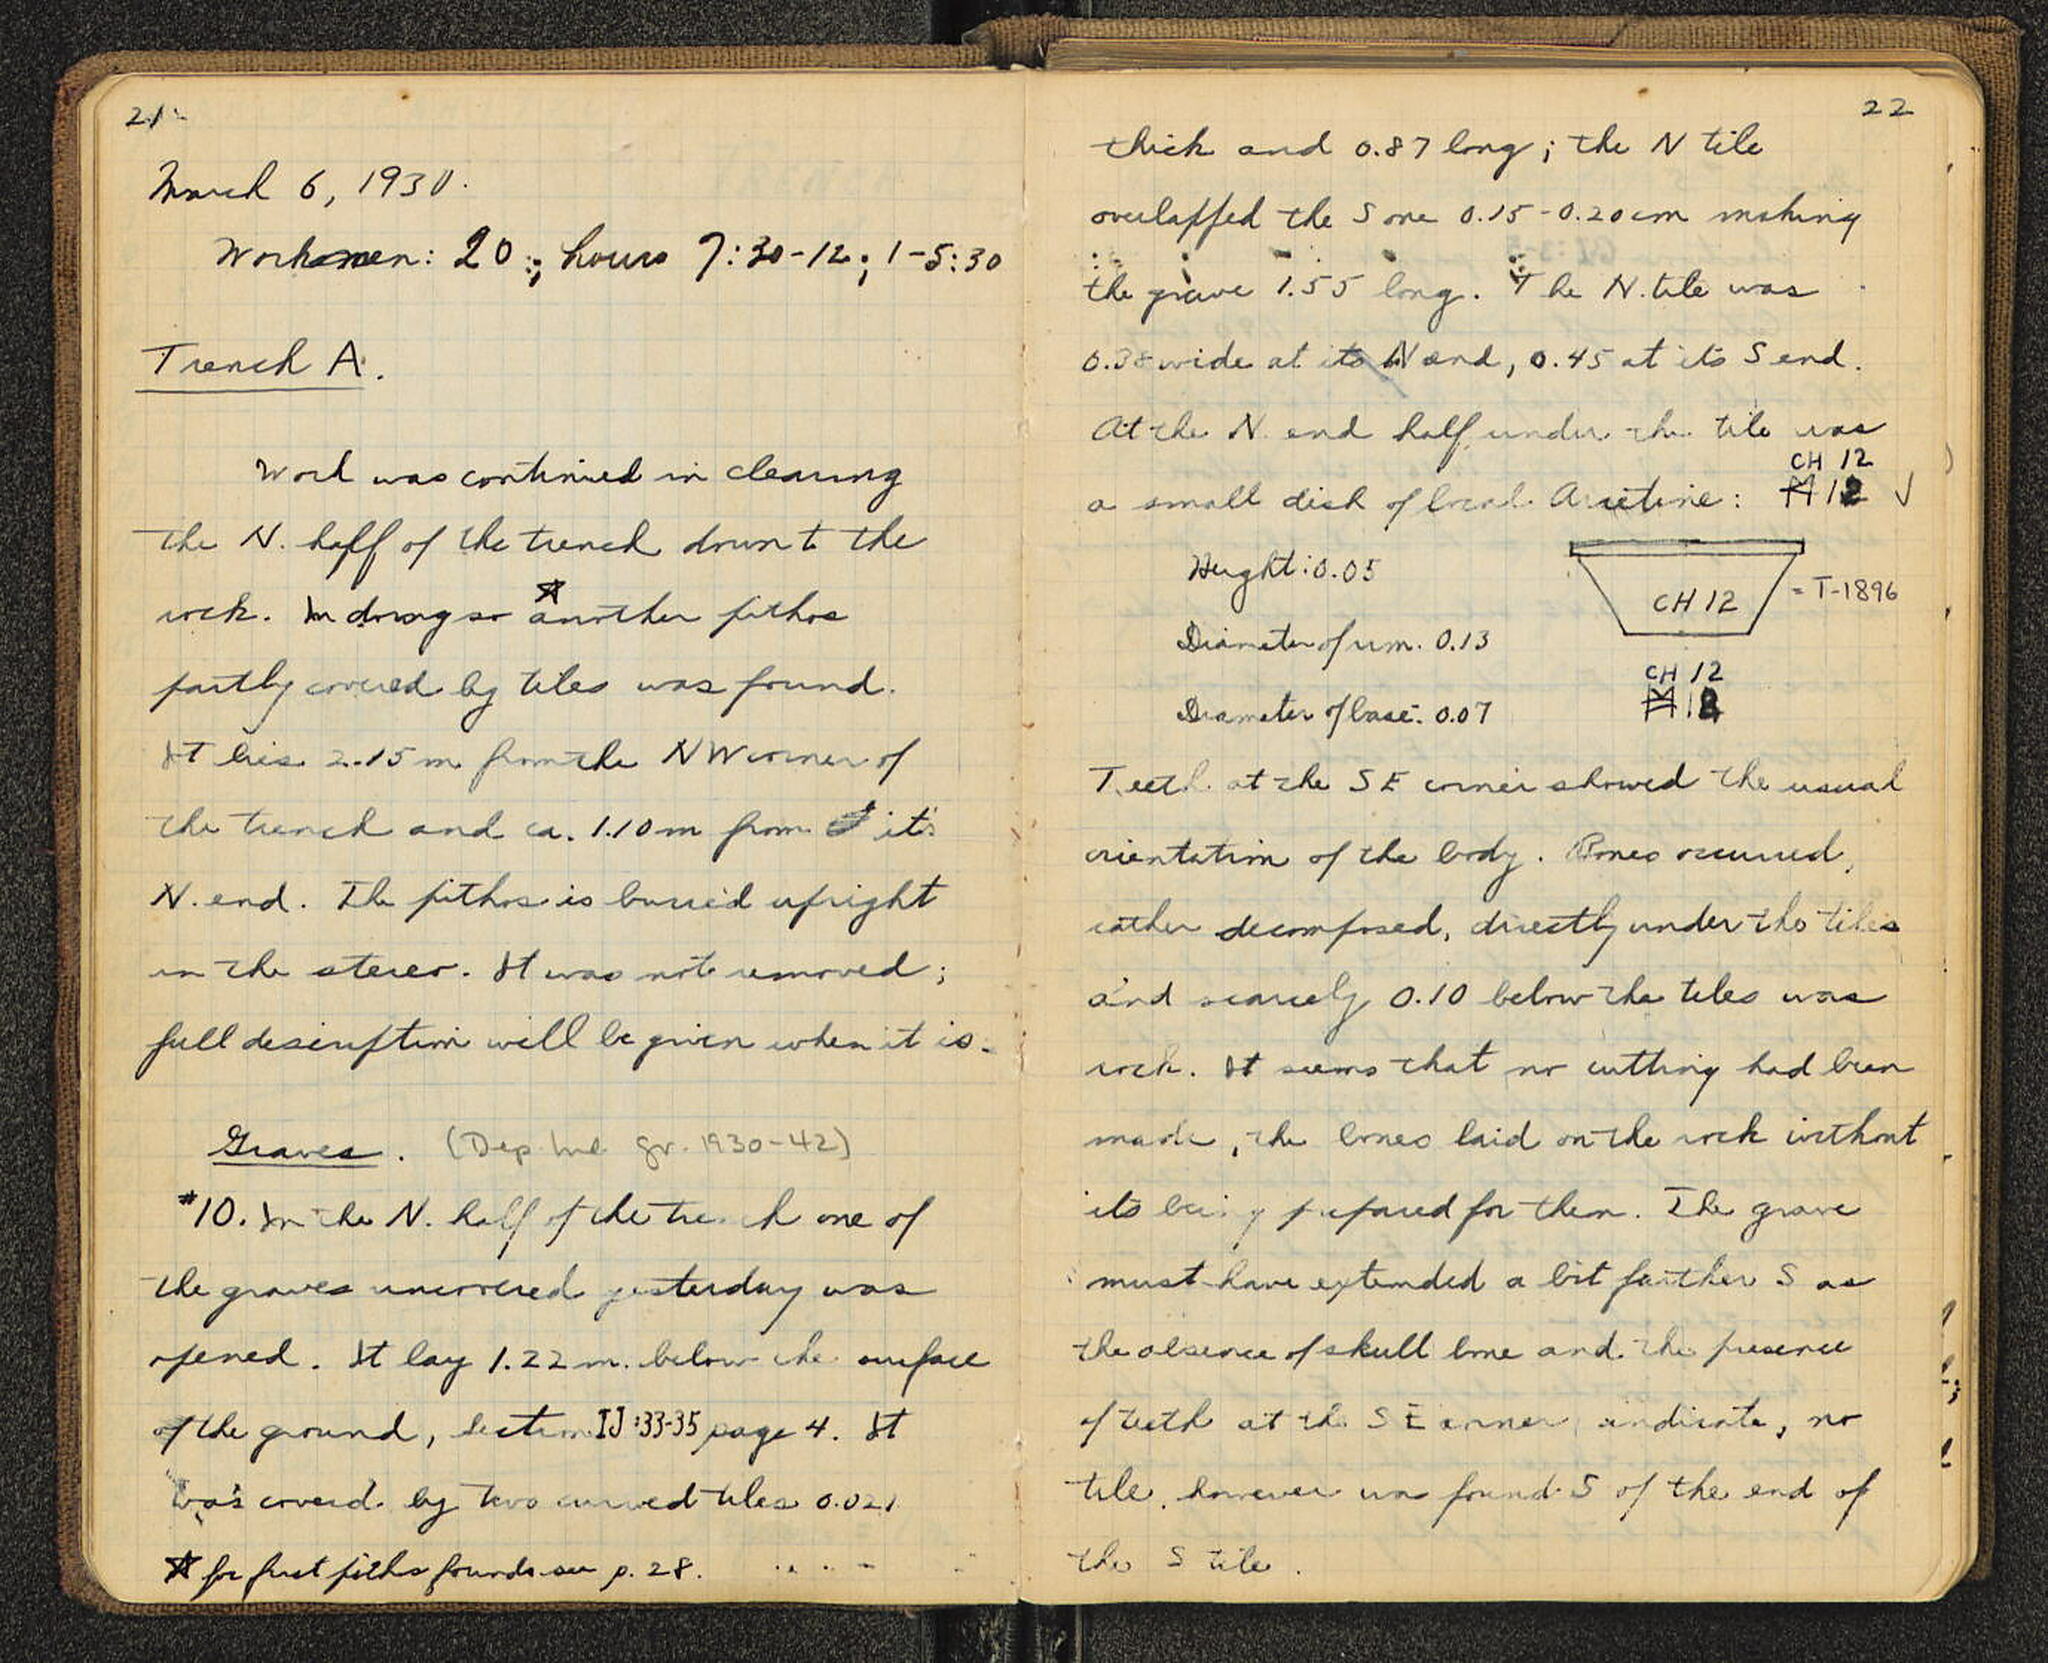 21
March 6, 1930.
Workmen: 20; hours 7:30-12; 1-5:30
Trench A.
Work was continued in clearing
the N. half of the trench down to the
rock. In doing so another pithos
partly covered by tiles was found.
It lies 2.15 m from the NW corner of
the trench and ca. 1.10 m from its
N. end. The pithos is buried upright
in the stereo. It was not removed;
full description will be given when it is.
Graves. (Dep. gr. 1930-42)
#10. In the N. half of the trench one of
the graves uncovered yesterday was
opened. It lay 1.22 m. below the surface
of the ground, section IJ:33-35 page 4. It
was covered by two curved tiles 0.021
☆ for first pithos found see p. 28.
22
thick and 0.87 long; the N tile
overlapped the S one 0.15-0.20 cm making
the grave 1.55 long. The N. tile was
0.38 wide at its N end, 0.45 at its S end.
At the N. end half under the tile was
CH 12
a small dish of local Arretine: 12 ✓
Height: 0.05
CH 12 = T-1896
Diameter of rim. 0.13
CH 12
Diameter of base. 0.07
Teeth at the SE corner showed the usual
orientation of the body. Bones occurred,
rather decomposed, directly under the tiles
and scarcely 0.10 below the tiles was
rock. It seems that no cutting had been
made, the bones laid on the rock without
its being prepared for them. The grave
must have extended a bit further S as
the absence of skull bone and the presence
of teeth at the SE corner indicate, no
tile, however was found S of the end of
the S tile.